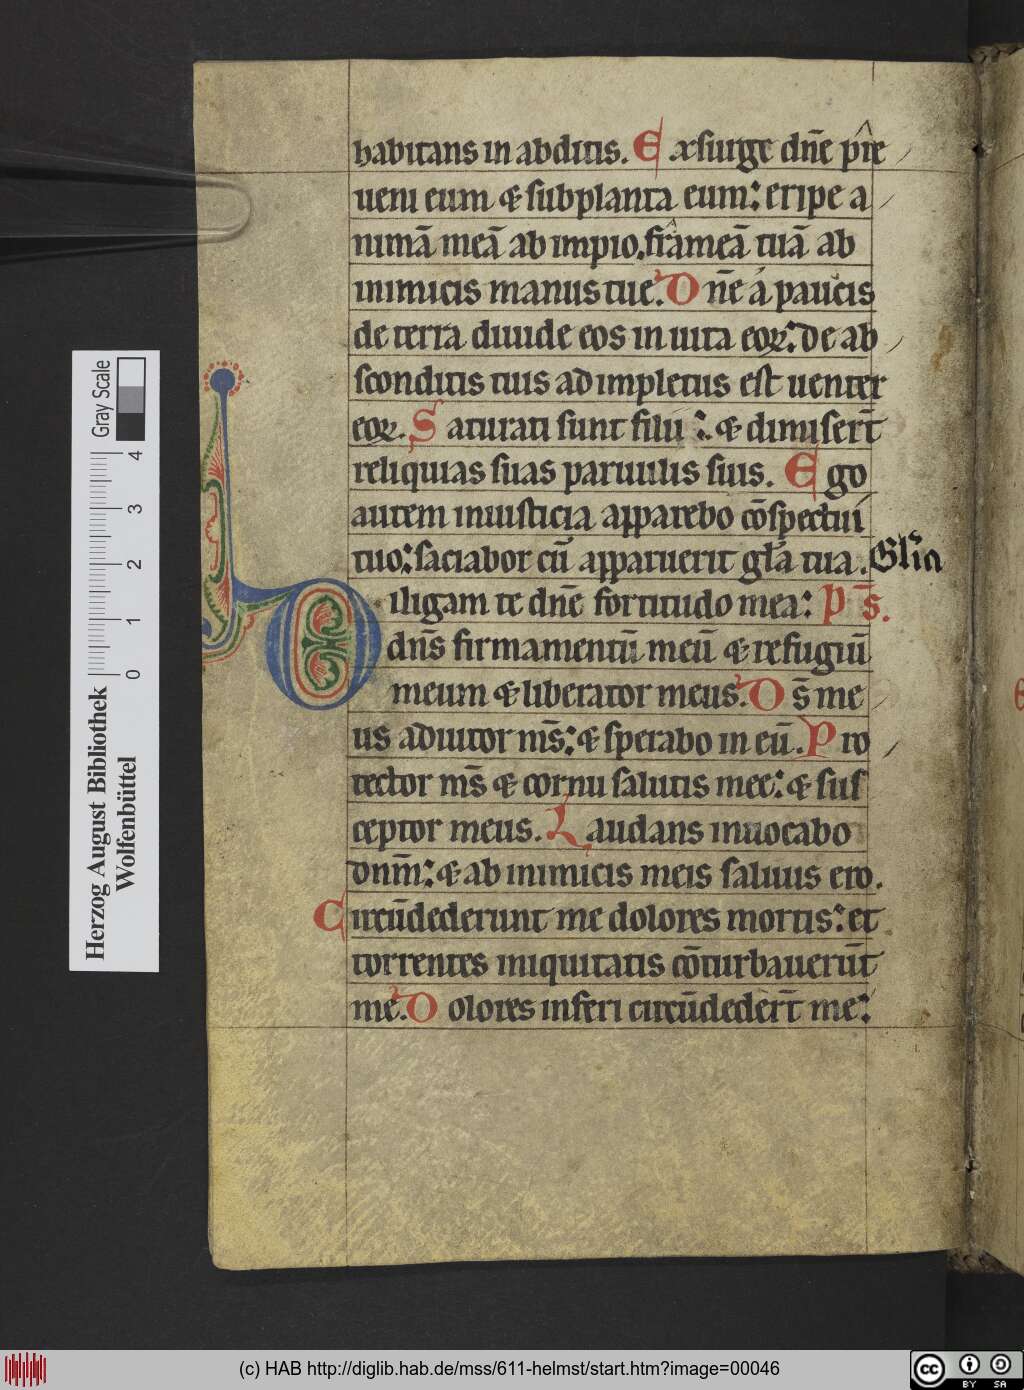 habitans in abditis. Exsurge dn̄e pre
ueni eum & subplanta eum: eripe a
nimā meā ab impio. frameā tuā ab
inimicis manus tue. Dn̄e a paucis
de terra diuide eos in uita eoꝝ: de ab
sconditis tuis adimpletus est uenter
eoꝝ. Saturati sunt filii: & dimiser̄t
reliquias suas paruulis suis. Ego
autem in iusticia apparebo cōspectui
tuo: saciabor cū apparuerit gl̄a tua. Gl̄ia
Diligam te dn̄e fortitudo mea: P̄s.
dn̄s firmamentū meū & refugiū
meum & liberator meus. Ds̄ me
us adiutor ms̄: & sperabo in eū. Pro
tector ms̄ & cornu salutis mee: & sus
ceptor meus. Laudans inuocabo
dnm̄: & ab inimicis meis saluus ero.
Circūdederunt me dolores mortis: et
torrentes iniquitatis cōturbauerūt
me. Dolores inferi circūdeder̄t me:
Herzog August Bibliothek
Wolfenbüttel
Gray Scale
0 1 2 3 4
(c) HAB http://diglib.hab.de/mss/611-helmst/start.htm?image=00046
cc BY SA